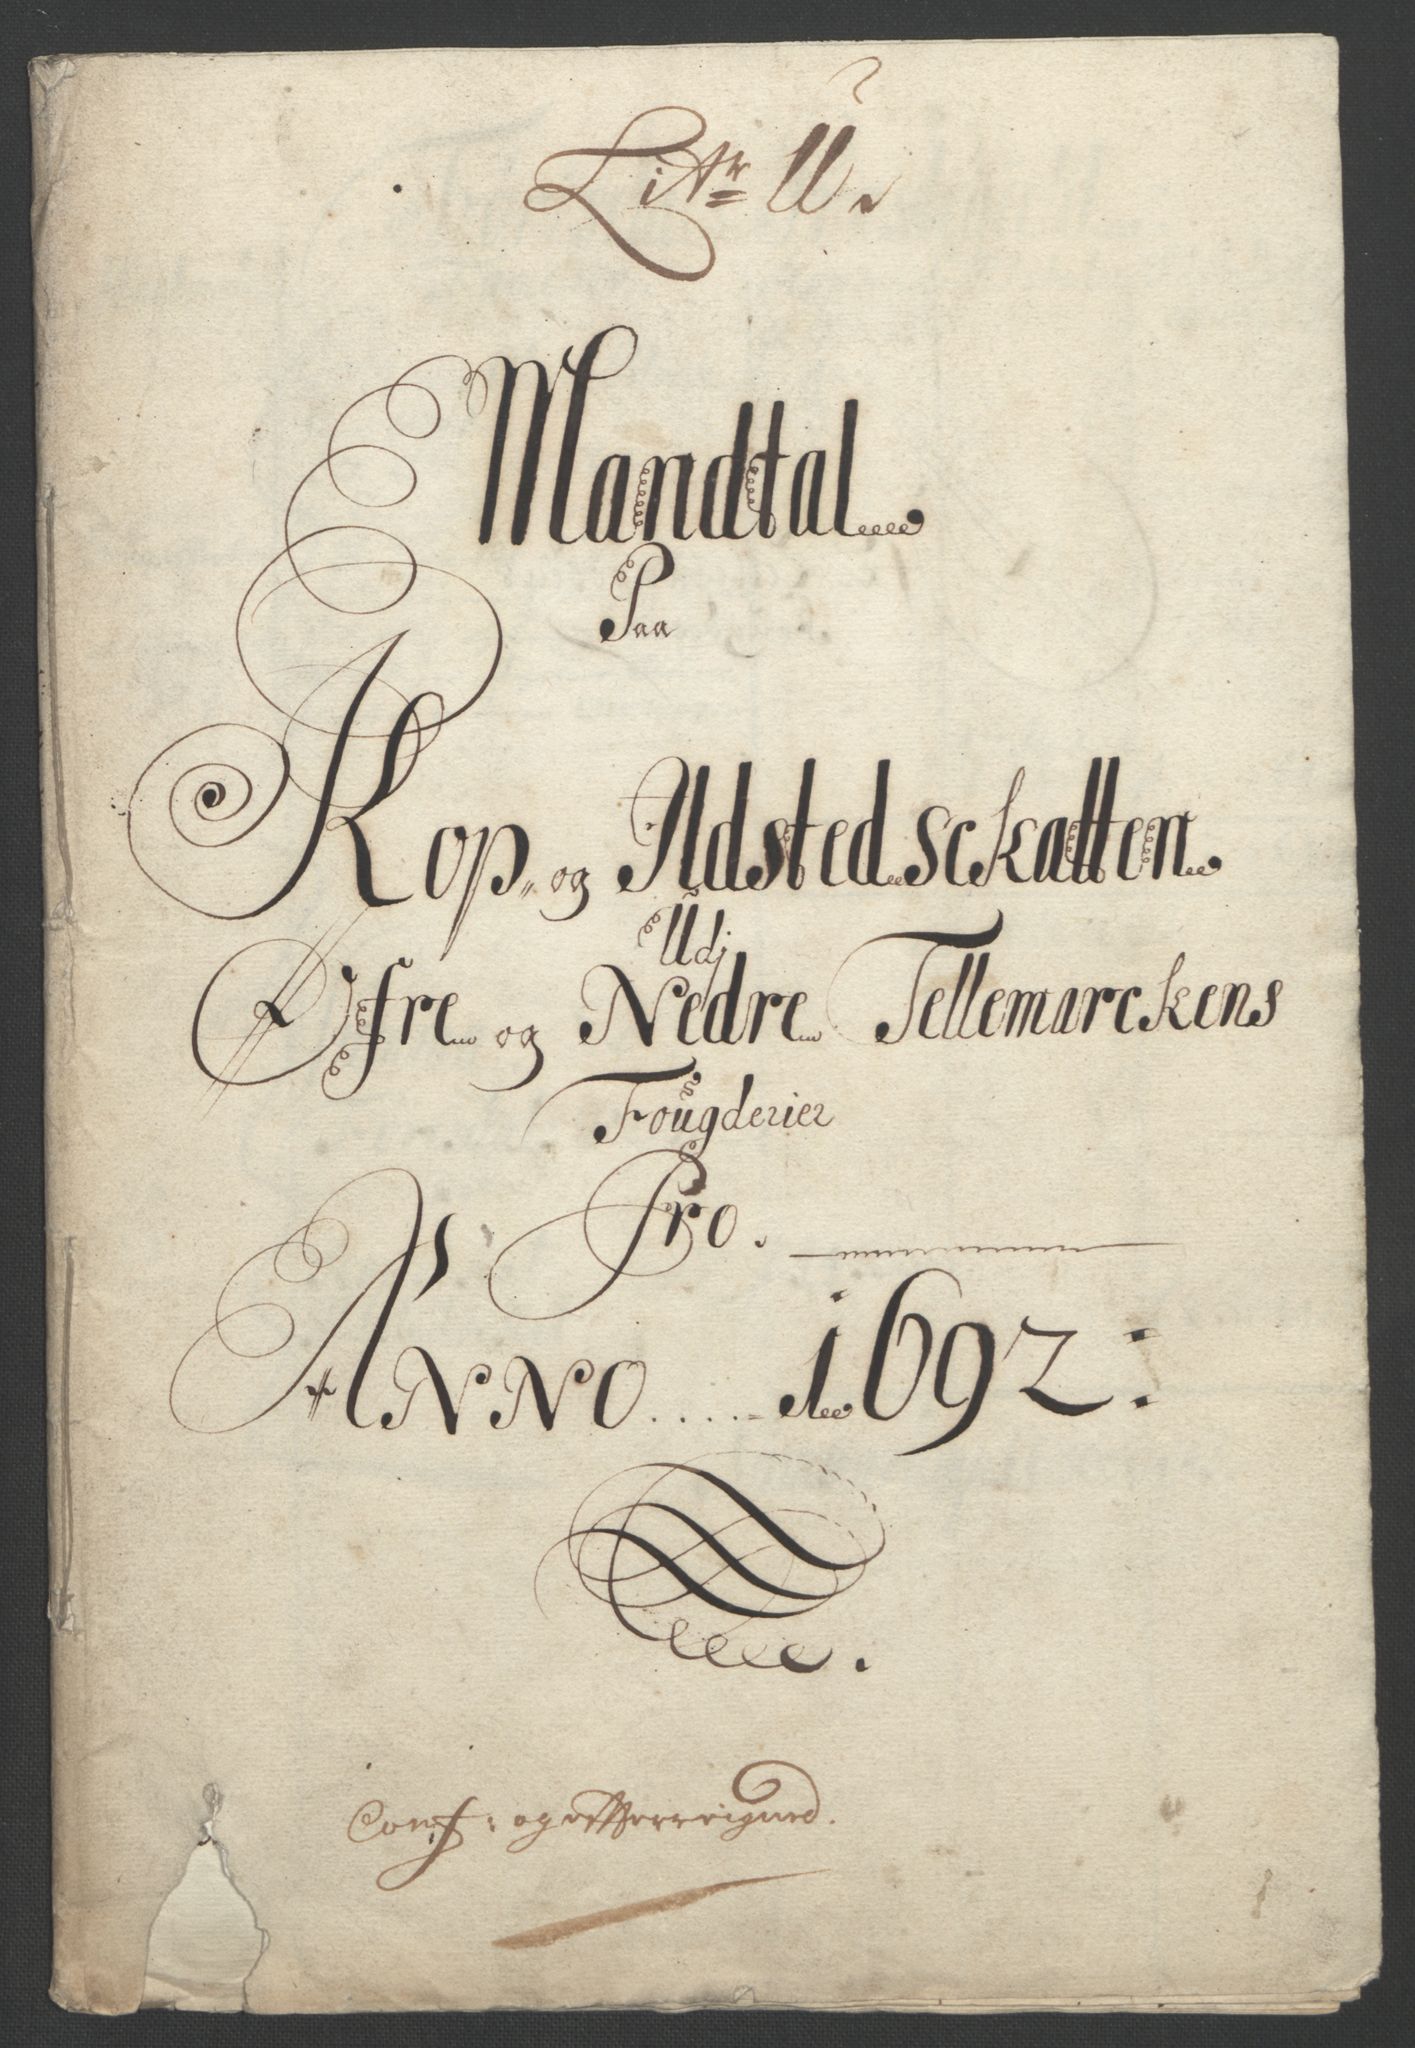 Litr U.
Mandtal
Paa
Kop- og Ildstedschatten
Udj
Øfre og Nedre Tellemarckens
Fougderier
Pro.
ANNO.....1692:
Conf: og efterreigned.